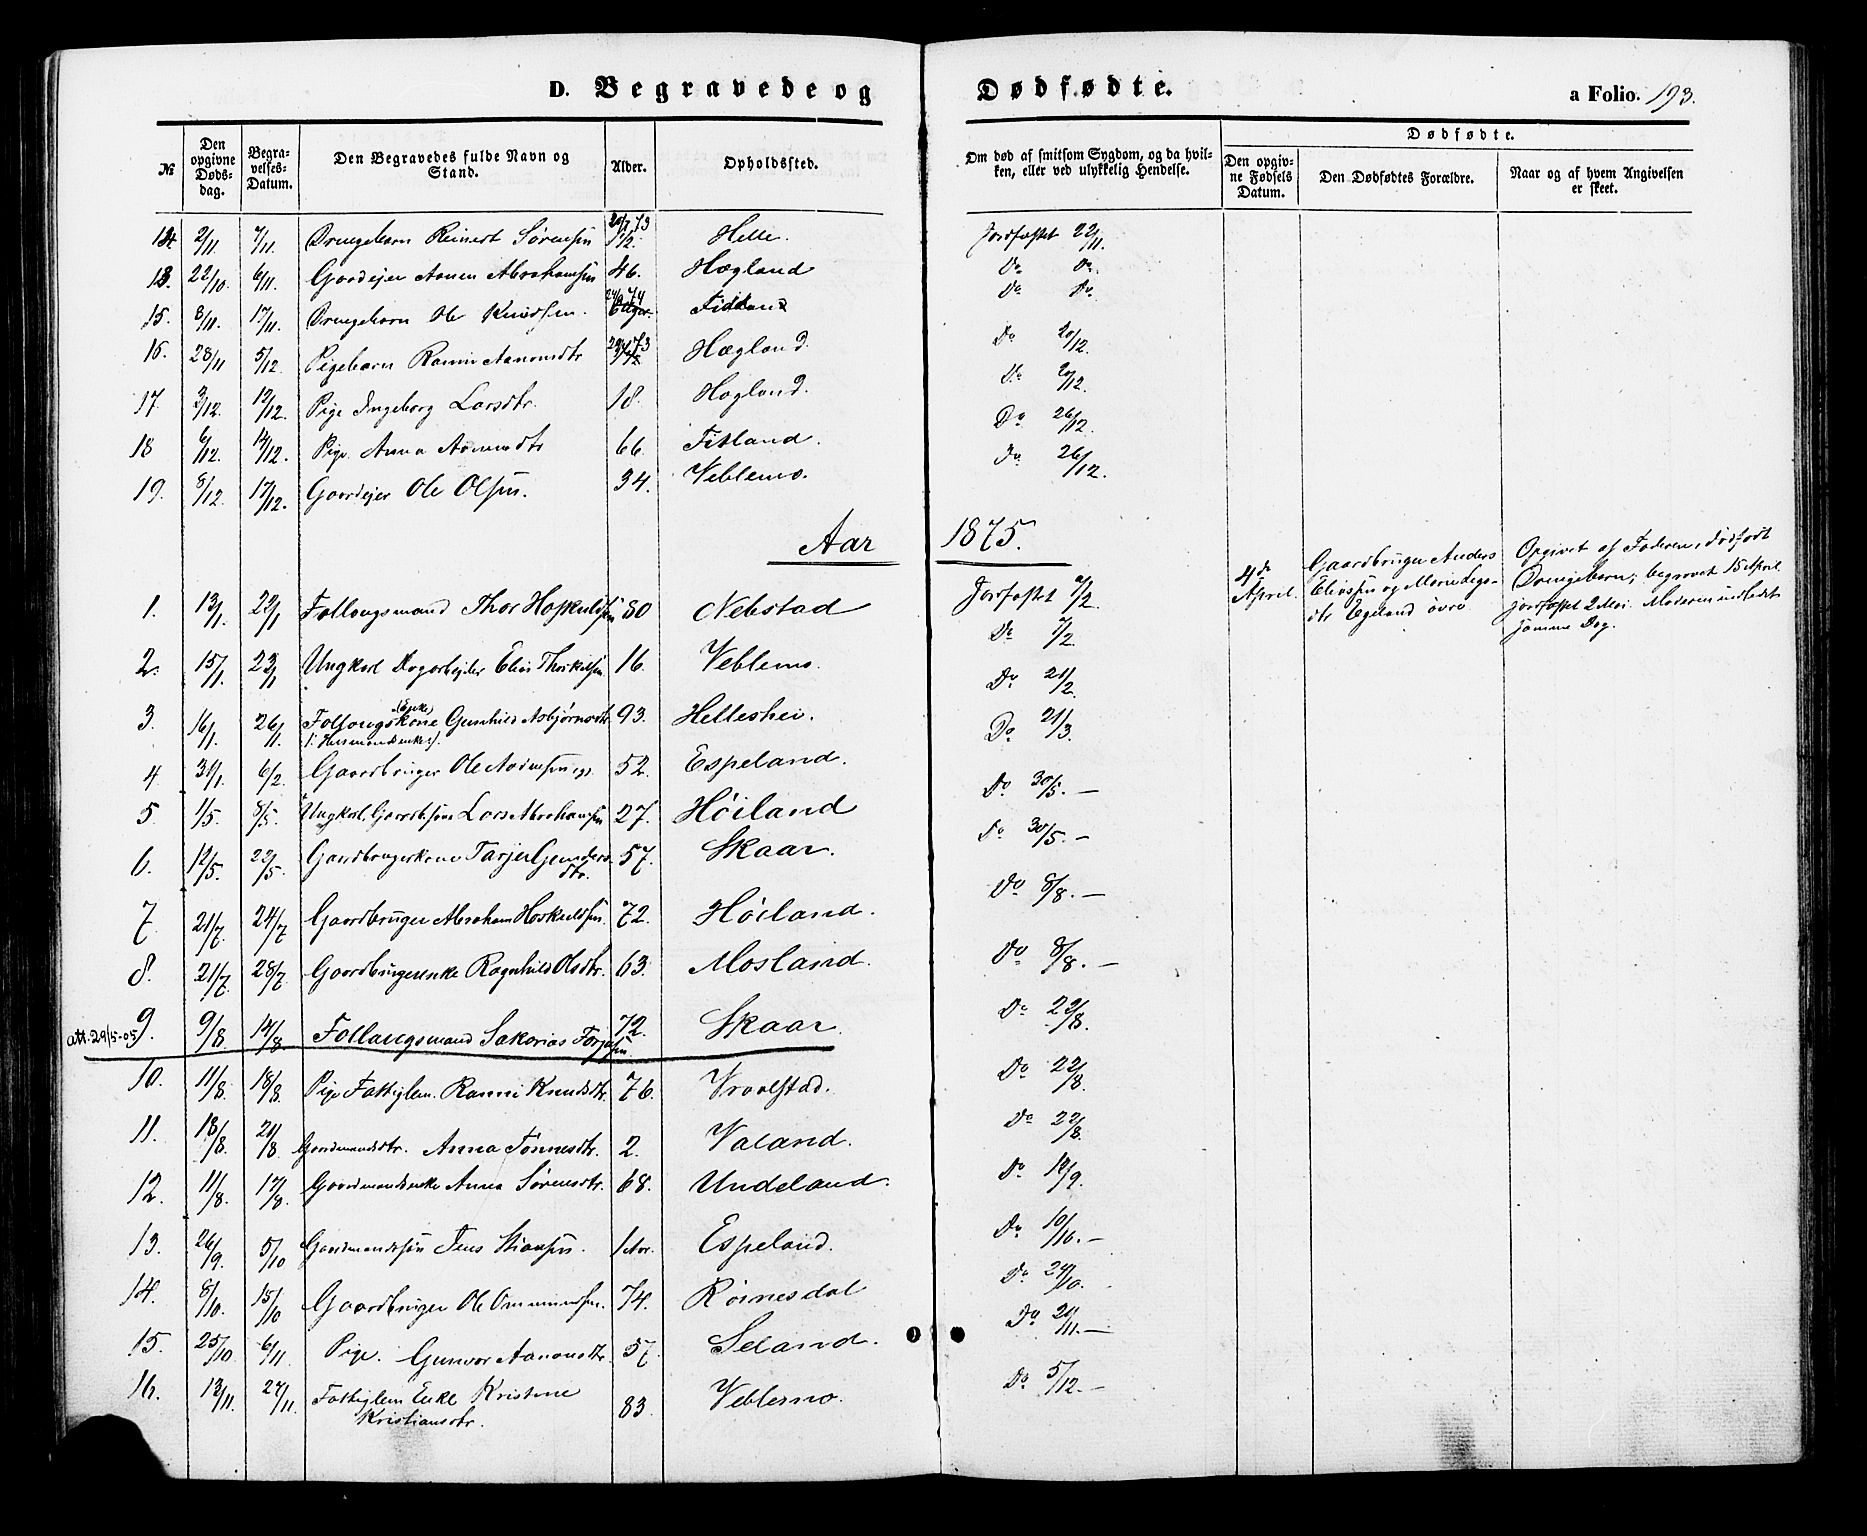 D. Begravede og Dødfødte. a Folio. 193.
№ | Den opgivne Døds-dag. | Begra-velses-Datum. | Den Begravedes fulde Navn og Stand. | Alder. | Opholdssted. | Om død af smitsom Sygdom, og da hvil-ken, eller ved ulykkelig Hendelse. | Dødfødte. | Den opgiv-ne Fødsels Datum. | Den Dødfødtes Forældre. | Naar og af hvem Angivelsen er skeet.
14. 2/11 7/11 Drengebarn Reinert Sørensen 1 1/2. Helle. Jordfæstet 22/11.
13. 22/10. 6/11. Gaardejer Aanen Abrahamsen 46. Hægland Do Do.
15. 8/11. 17/11. Drengebarn Ole Knudsen. Fidtland Do Do.
16. 28/11 5/12. Pigebarn Ranni Aanonsdtr Hægland. Do 20/12.
17. 3/12. 13/12. Pige Ingeborg Larsdtr. 18. Hægland. Do 20/12.
18 6/12. 14/12. Pige Anna 66. Fitland. Do 26/12.
19. 8/12. 17/12. Gaardejer Ole Olsen. 34. Veblemo. Do 26/12.
Aar 1875.
1. 13/1. 22/1 Follaugsmand Thor Hoskuldsen 80 Nebstad Jordfæstet 7/2.
2. 15/1. 23/1 Ungkarl Dagarbejder Elias Thorkilsen 16. Veblemo. Do 7/2.
3. 16/1. 26/1. Follaugskone Gunhild Asbjørnsdtr. 93. Helleshei. Do 21/2.
/: Husmandsenke :/.
4 31/1. 6/2. Gaardbruger Ole 52. Espeland. Do 21/3.
5. 1/5. 8/5. Ungkarl, Gaardb.søn Lars Abrahamsen 27. Höiland Do 30/5. —
6. 12/5. 22/5. Gaardbrugerkone Tarjer 57. Skaar. Do 30/5. —
dtr.
7. 21/7. 24/7 Gaardbruger Abraham Hoskuldsen. 72. Höiland. Do 8/8. —
8. 21/7. 28/7 Gaardbrugerenke Ragnhild Olsdtr. 63. Mosland. Do 8/8. —
att. 29/5-05 9. 9/8 14/8 Follaugsmand Sakarias Tarjesen. 72. Skaar. Do 22/8.
10. 11/8. 18/8. Pige Fattiglem. Ranni Knudsdtr. 76. Vraalstad. Do 22/8.
11. 18/8. 21/8. Gaardmandsdtr. Anna Tønnesdtr. 2. Valand. Do 22/8.
12. 11/8 17/8 Gaardmandsenke Anna Sørensdtr. 68. Undeland. Do 12/9.
13. 26/9. 5/10 Gaardmandssøn Jens Stiansen. 1 Aar. Espeland. Do 10/10. —
14. 8/10. 15/10 Gaardbruger Ole Ommundsen. 74. Röinesdal Do 24/10.
15. 25/10 6/11. Pige. Gunvor Aanonsdtr 57. Seland. Do 21/11. —
16. 13/11. 27/11. Fattiglem Enke Kristene 83. Veblemo. Do 5/12. —
Kristiansdtr.
4de April.
Gaardbruger Anders
Eliassen og Marie
dtr Egeland övre
Opgivet af Faderen, dødfødt
Drengebarn, begravet 15 April
jordfæstet 2 Mai. Moderen indledet
samme Dag.